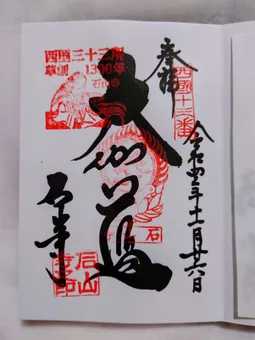 奉拝
西國十三番
令和四年十一月廿六日
西國三十三所
草創1300年
石山寺
大伽藍
石
石山寺
石山